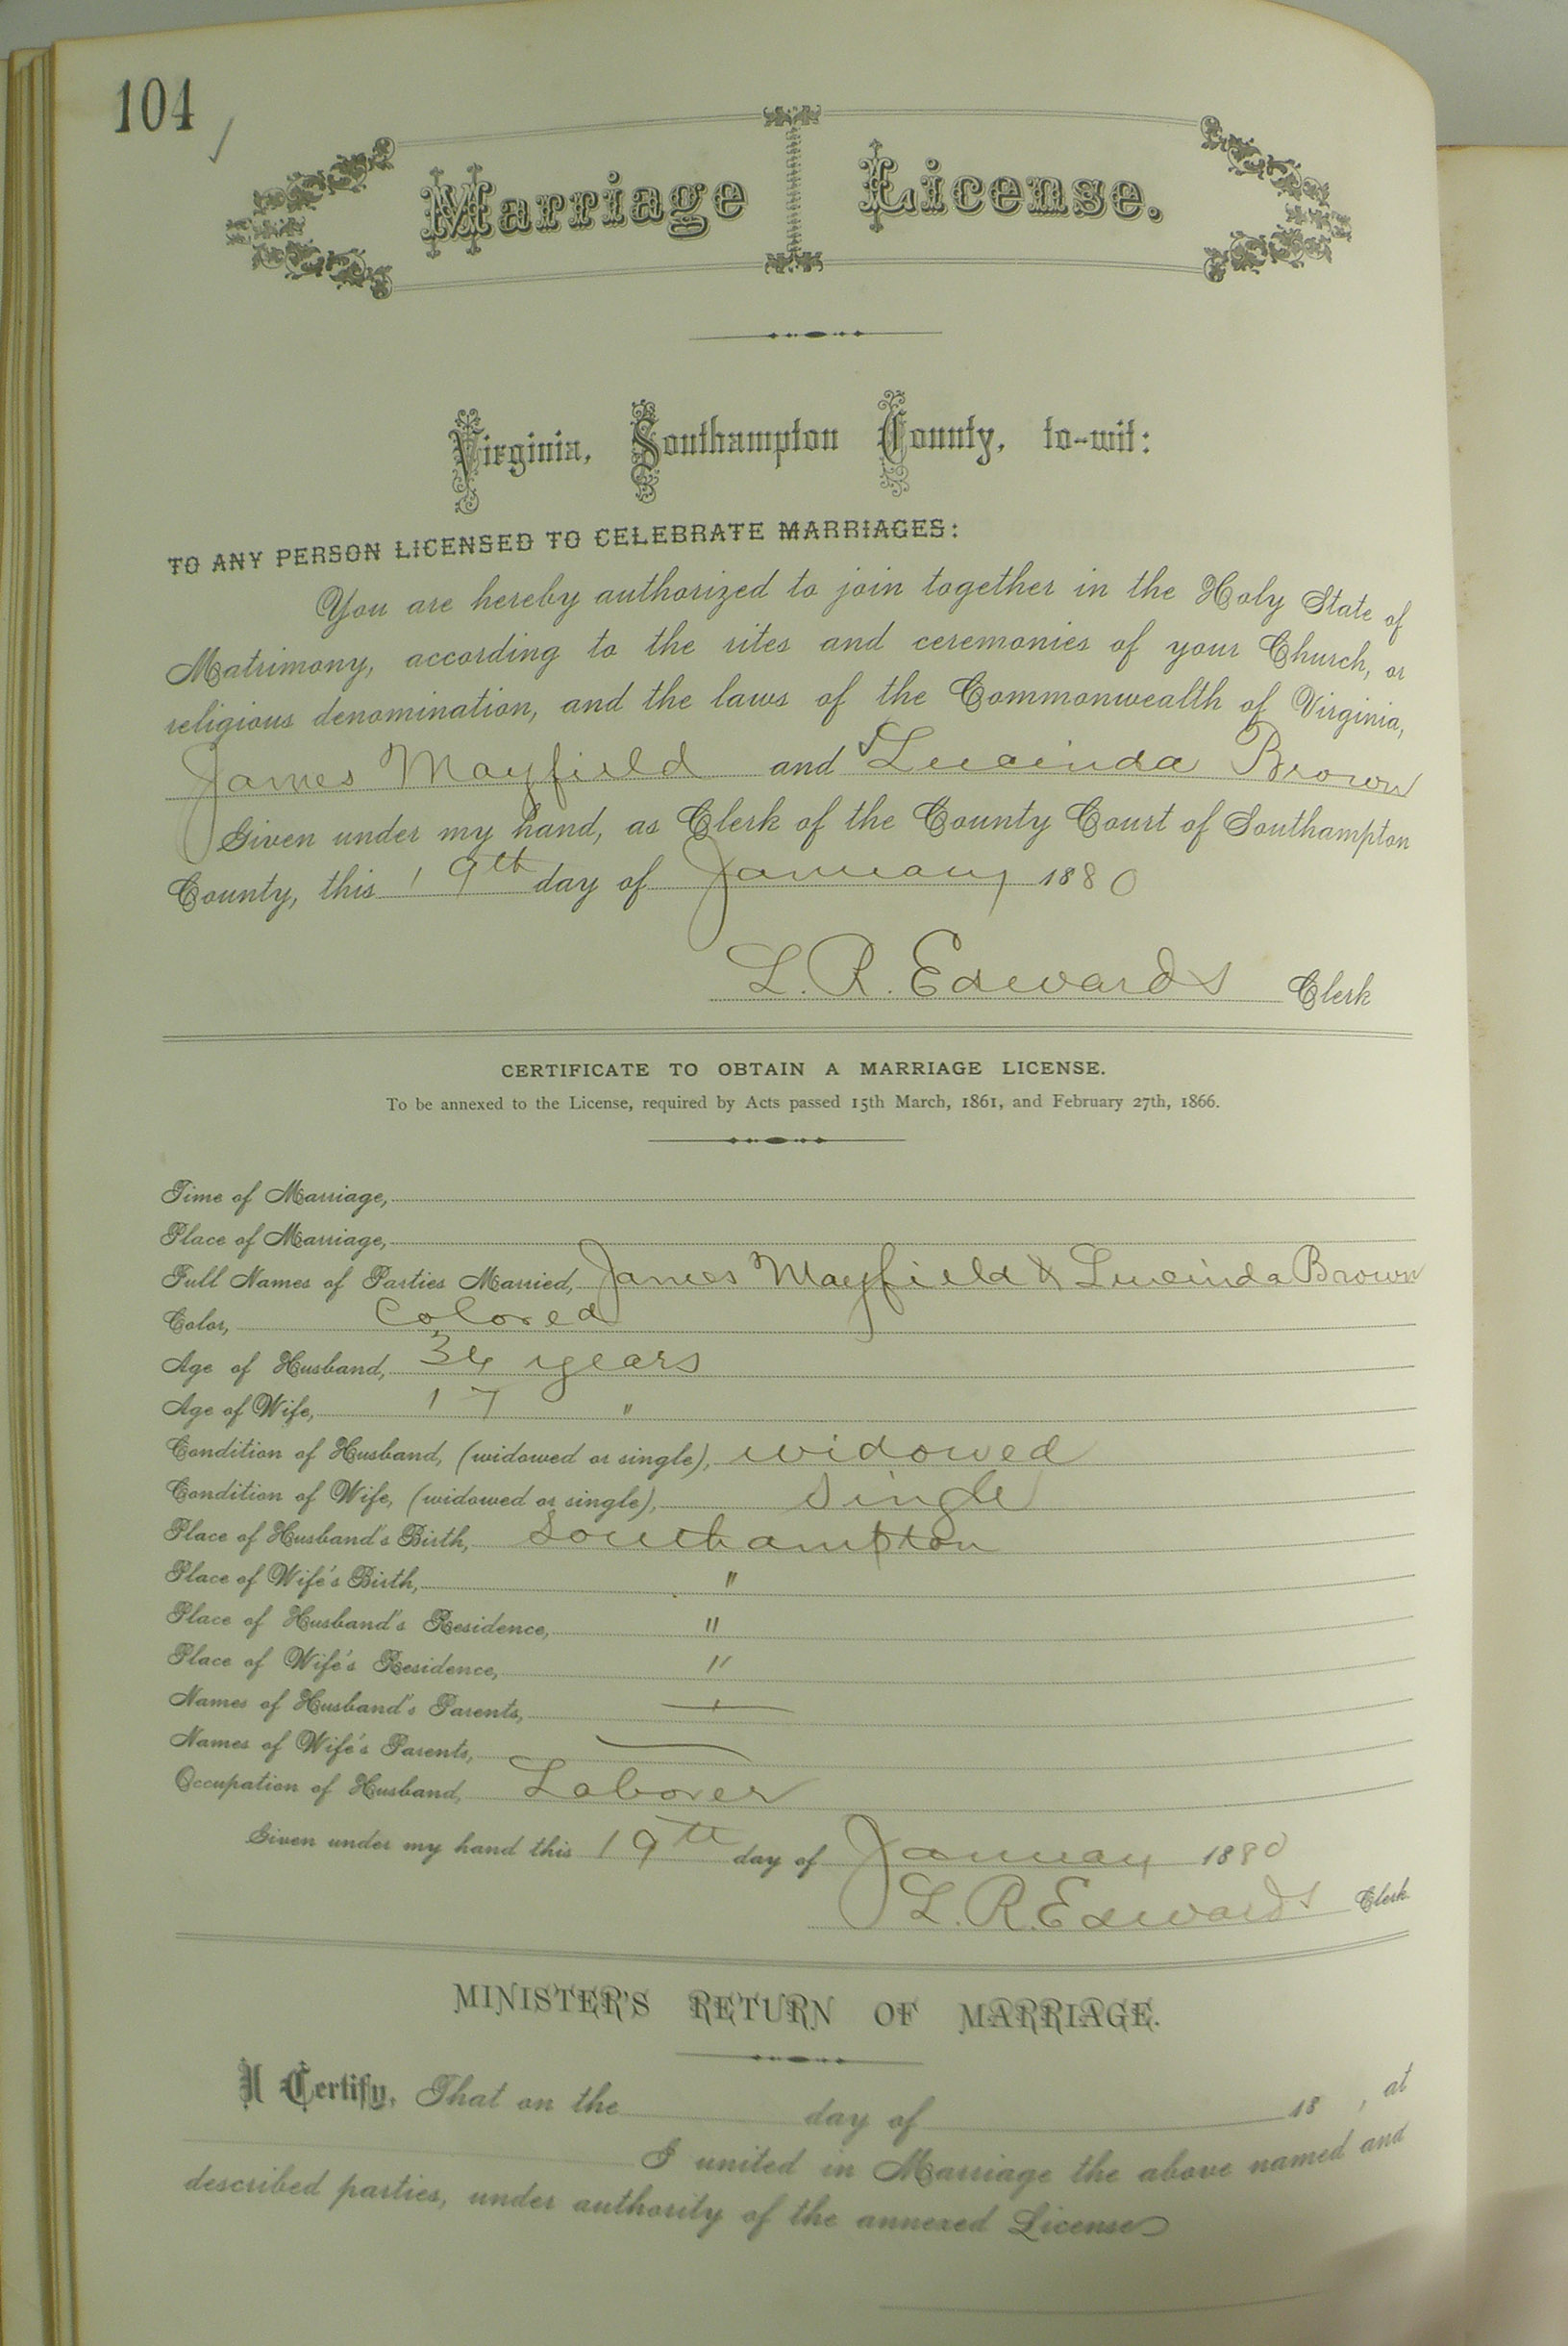 104
Marriage License.
Virginia, Southampton County, to-wit:
TO ANY PERSON LICENSED TO CELEBRATE MARRIAGES:
You are hereby authorized to join together in the Holy State of
Matrimony, according to the rites and ceremonies of your Church, or
religious denomination, and the laws of the Commonwealth of Virginia,
James Mayfield and Lucinda Brown
Given under my hand, as Clerk of the County Court of Southampton
County, this 19th day of January 1880
L. R. Edwards Clerk
CERTIFICATE TO OBTAIN A MARRIAGE LICENSE.
To be annexed to the License, required by Acts passed 15th March, 1861, and February 27th, 1866.
Time of Marriage,
Place of Marriage,
Full Names of Parties Married, James Mayfield & Lucinda Brown
Color, Colored
Age of Husband, years
Age of Wife, 17 "
Condition of Husband, (widowed or single), widowed
Condition of Wife, (widowed or single), Single
Place of Husband's Birth, Southampton
Place of Wife's Birth, "
Place of Husband's Residence, "
Place of Wife's Residence, "
Names of Husband's Parents, —
Names of Wife's Parents, —
Occupation of Husband, Laborer
Given under my hand this 19th day of January 1880
L. R. Edwards Clerk
MINISTER'S RETURN OF MARRIAGE.
I Certify, That on the day of 18 , at
I united in Marriage the above named and
described parties, under authority of the annexed License